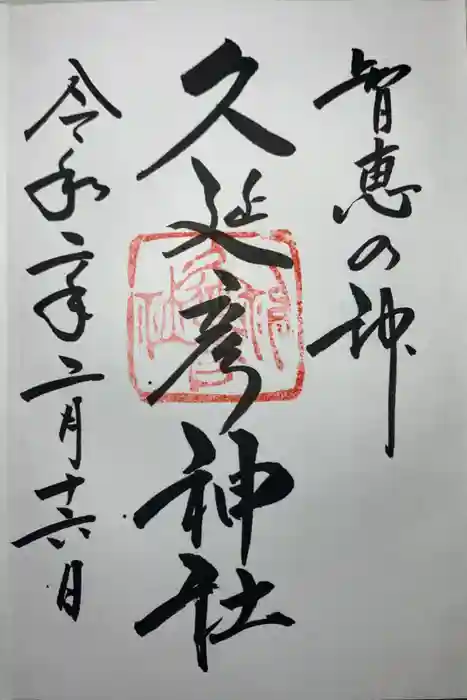 智恵の神
久延彦神社
令和二年二月十六日